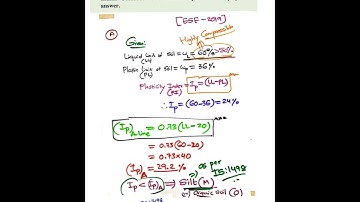 answer.
[ESE-2019]
(A)
Highly Compressible
Given:
Liquid limit of Soil = ωL = 60% >50%
(LL)
Plastic limit of Soil = ωp = 36%
(PL)
Plasticity Index = Ip = (LL-PL)
(PI)
∴ Ip = (60-36) = 24%
(Ip)A-line = 0.73 (LL-20)
= 0.73 (60-20)
= 0.73×40
(Ip)A = 29.2 %
as per
IS:1498
Ip < (Ip)A ⇒ Silt (M)
(or) Organic Soil (O)